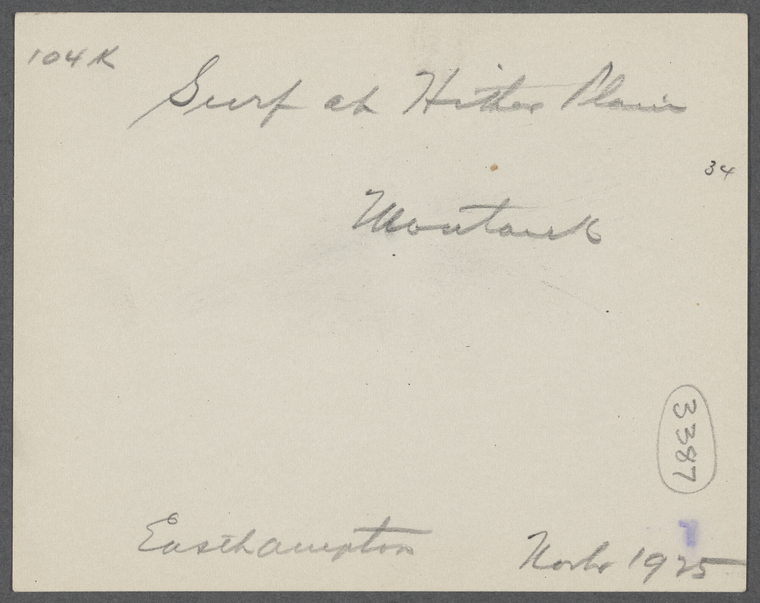 104K
Surf at Hither Plain
34
Montauk
3387
Easthampton
1925